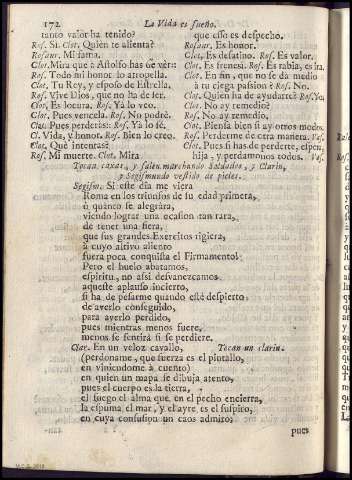 172. La Vida es sueño.
tanto valor ha tenido?
Ros. Si. Clot. Quien te alienta?
Rosaur. Mi fama.
Clot. Mira que à Astolfo has de vèr:
Ros. Todo mi honor lo atropella.
Clot. Tu Rey, y esposo de Estrella.
Ros. Vive Dios, que no ha de ser.
Clot. Es locura. Ros. Yà lo veo.
Clot. Pues vencela. Ros. No podrè.
Clot. Pues perderàs: Ros. Yà lo sè.
Cl. Vida, y honor. Ros. Bien lo creo.
Clot. Què intentas?
Ros. Mi muerte. Clot. Mira
que esso es despecho.
Rosaur. Es honor.
Clot. Es desatino. Ros. Es valor.
Clot. Es frenesì. Ros. Es rabia, es ira.
Clot. En fin, que no se dà medio
à tu ciega passion? Ros. No.
Clot. Quien ha de ayudarte? Ros. Yo.
Clot. No ay remedio?
Ros. No ay remedio.
Clot. Piensa bien si ay otros modos
Ros. Perderme de otra manera. Vas.
Clot. Pues si has de perderte, espera,
hija, y perdamonos todos. Vas.
Tocan caxas, y salen marchando Soldados, y Clarin,
y Segismundo vestido de pieles.
Segism. Si este dia me viera
Roma en los triunfos de su edad primera,
ò quanto se alegràra,
viendo lograr una ocasion tan rara,
de tener una fiera,
que sus grandes Exercitos rigiera,
à cuyo altivo aliento
fuera poca conquista el Firmamento!
Pero el huelo abatamos,
espiritu, no assi desvanezcamos
aqueste aplauso incierto,
si ha de pesarme quando estè despierto
de averlo conseguido,
para averlo perdido,
pues mientras menos fuere,
menos se sentirà si se perdiere.
Clar. En un veloz cavallo, Tocan un clarin.
(perdoname, que fuerza es el pintallo,
en viniendome à cuento)
en quien un mapa se dibuja atento,
pues el cuerpo es la tierra,
el fuego el alma que en el pecho encierra,
la espuma el mar, y el ayre es el suspiro,
en cuya confusion un caos admiro;
pues